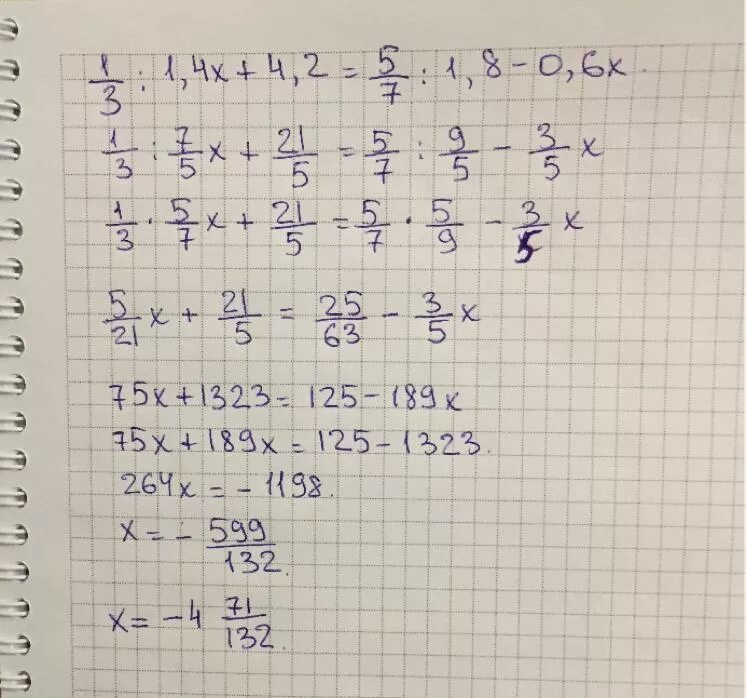 1/3 : 1,4x + 4,2 = 5/7 : 1,8 - 0,6x.
1/3 : 7/5 x + 21/5 = 5/7 : 9/5 - 3/5 x
1/3 · 5/7 x + 21/5 = 5/7 · 5/9 - 3/5 x
5/21 x + 21/5 = 25/63 - 3/5 x
75x + 1323 = 125 - 189x
75x + 189x = 125 - 1323.
264x = - 1198.
x = - 599/132.
x = -4 71/132.